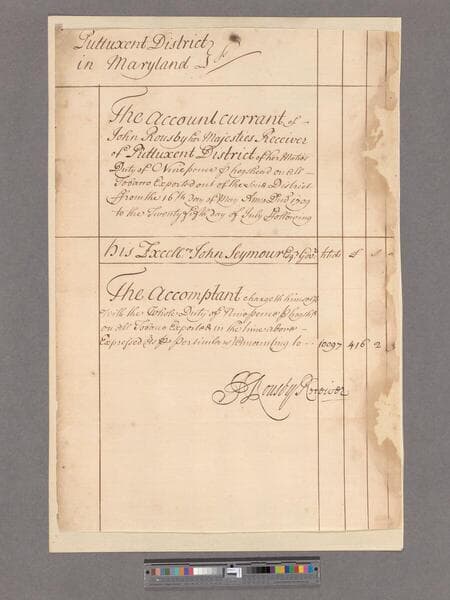 Puttuxent District
in Maryland
The Account Currant of
John Rousby her Majesties Receiver
of Puttuxent District of her
Duty of Nine pence p hogshead on all
Tobacco Exported out of the said District
from the 16th Day of May Anno Dom 1709
to the Twenty fifth Day of July Following
his Excell.cy John Seymour Esq Gov.r hhds £ s
The Accomptant chargeth himself
with the Whole Duty of Nine pence p hogsh.
on all Tobacco Exported in the time above
Expressed as p perticulars Amounting to 416 2
J Rousby Receiver